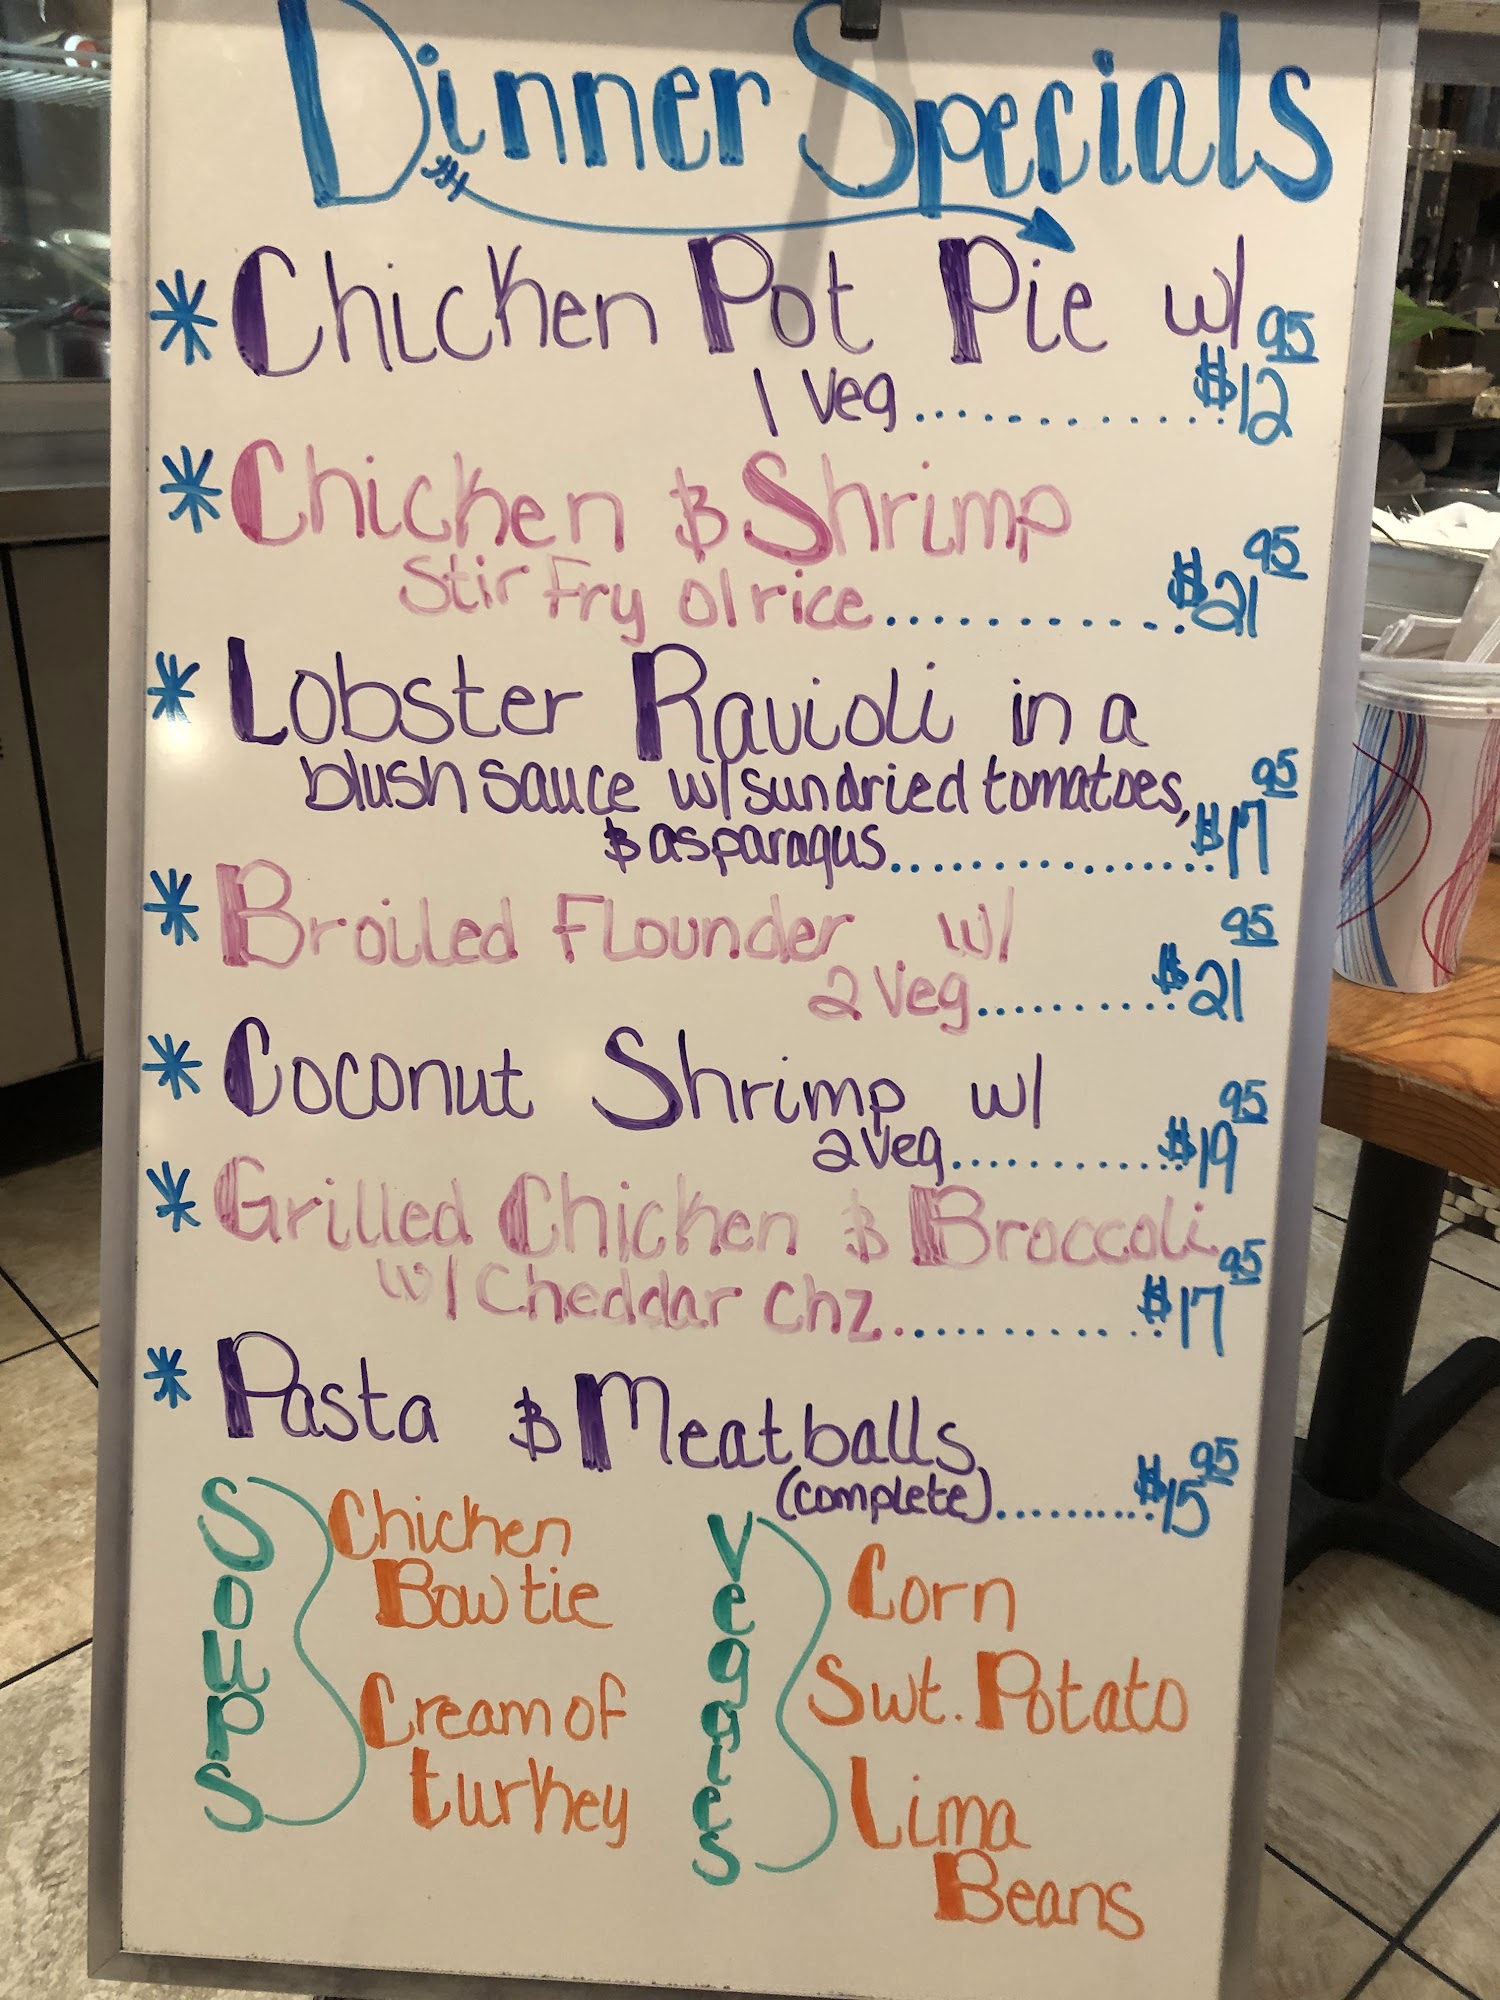 Dinner Specials
* Chicken Pot Pie w/
1 Veg............$12 95
* Chicken & Shrimp
Stir Fry o/rice............$21 95
* Lobster Ravioli in a
blush sauce w/sundried tomatoes,
& asparagus...............$17 95
* Broiled Flounder w/
2 Veg..........$21 95
* Coconut Shrimp w/
2 Veg............$19 95
* Grilled Chicken & Broccoli
w/Cheddar Chz............$17 95
* Pasta & Meatballs
(complete)..........$15 95
Soups
Chicken
Bowtie
Cream of
turkey
Veggies
Corn
Swt. Potato
Lima
Beans